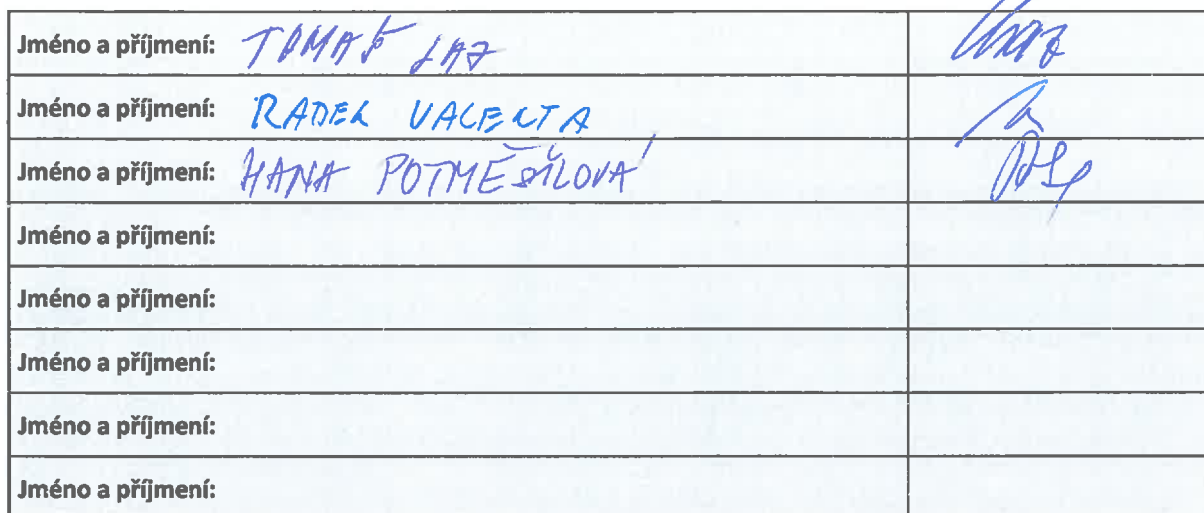 Jméno a příjmení: TOMAŠ
Jméno a příjmení: RADEK VALENTA
Jméno a příjmení: HANA POTMĚŠILOVÁ
Jméno a příjmení:
Jméno a příjmení:
Jméno a příjmení:
Jméno a příjmení:
Jméno a příjmení: